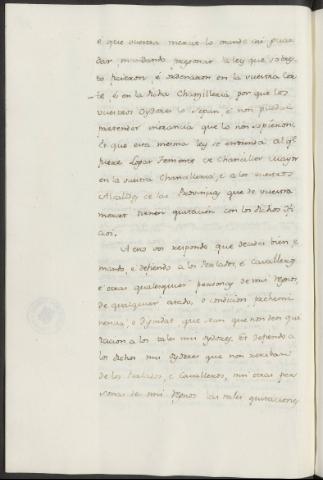 e que vuestra merced lo mande asi guar
dar, mandando pregonar la ley que sobre
to ficieron, e ordenaron en la vuestra Cor
te, e en la dicha Chancilleria, por que los
vuestros Oydores lo sepan, e non puedan
pretender ignorancia que lo non sopieron:
Et que esta mesma ley se entienda al qe
fuere Logar Teniente de Chanciller mayor
en la vuestra Chancilleria, e a los vuestros
Alcaldes de las Provincias que de vuestra
merced tienen quitacion con los dichos Ofi
cios.
A esto vos respondo que decides bien, e
mando, e defiendo a los Perlados, e Cavalleros
e otras qualesquier personas de mis Regnos,
de qualquier estado, o condicion, prehemi
nencia, o dignidat, que sean que non den qui
tacion a los tales mis Oydores. Et defiendo a
los dichos mis Oydores que non resciban
de los Perlados, e Cavalleros, nin otras per
sonas de mis Regnos las tales quitaciones